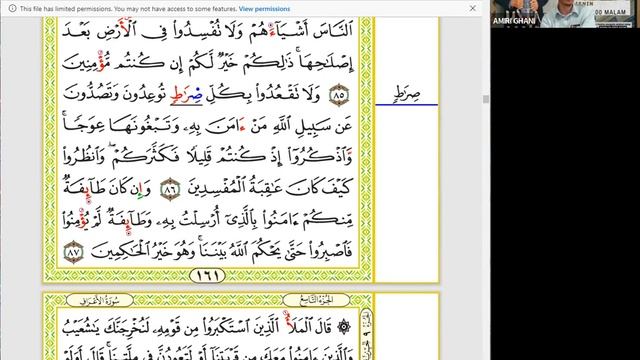 This file has limited permissions. You may not have access to some features. View permissions
AMIRI GHANI
00 MALAM
ٱلنَّاسَ أَشْيَآءَهُمْ وَلَا تُفْسِدُوا۟ فِى ٱلْأَرْضِ بَعْدَ
إِصْلَٰحِهَا ۚ ذَٰلِكُمْ خَيْرٌ لَّكُمْ إِن كُنتُم مُّؤْمِنِينَ
٨٥ وَلَا تَقْعُدُوا۟ بِكُلِّ صِرَٰطٍ تُوعِدُونَ وَتَصُدُّونَ
صِرَٰطٍ
عَن سَبِيلِ ٱللَّهِ مَنْ ءَامَنَ بِهِۦ وَتَبْغُونَهَا عِوَجًا ۚ
وَٱذْكُرُوٓا۟ إِذْ كُنتُمْ قَلِيلًا فَكَثَّرَكُمْ ۖ وَٱنظُرُوا۟
كَيْفَ كَانَ عَٰقِبَةُ ٱلْمُفْسِدِينَ ٨٦ وَإِن كَانَ طَآئِفَةٌ
مِّنكُمْ ءَامَنُوا۟ بِٱلَّذِىٓ أُرْسِلْتُ بِهِۦ وَطَآئِفَةٌ لَّمْ يُؤْمِنُوا۟
فَٱصْبِرُوا۟ حَتَّىٰ يَحْكُمَ ٱللَّهُ بَيْنَنَا ۚ وَهُوَ خَيْرُ ٱلْحَٰكِمِينَ ٨٧
١٦١
الجزء التاسع
سورة الأعراف
قَالَ ٱلْمَلَأُ ٱلَّذِينَ ٱسْتَكْبَرُوا۟ مِن قَوْمِهِۦ لَنُخْرِجَنَّكَ يَٰشُعَيْبُ
وَٱلَّذِينَ ءَامَنُوا۟ مَعَكَ مِن قَرْيَتِنَآ أَوْ لَتَعُودُنَّ فِى مِلَّتِنَا ۚ قَالَ أَوَلَوْ